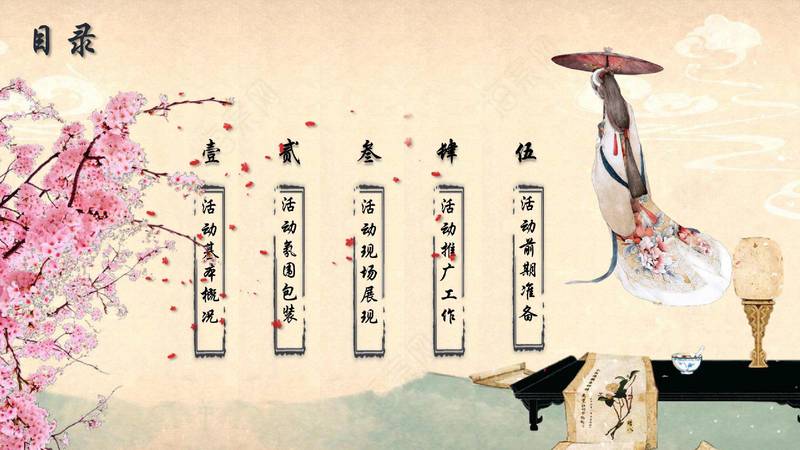 目录
壹
活动基本概况
贰
活动氛围包装
叁
活动现场展现
肆
活动推广工作
伍
活动前期准备